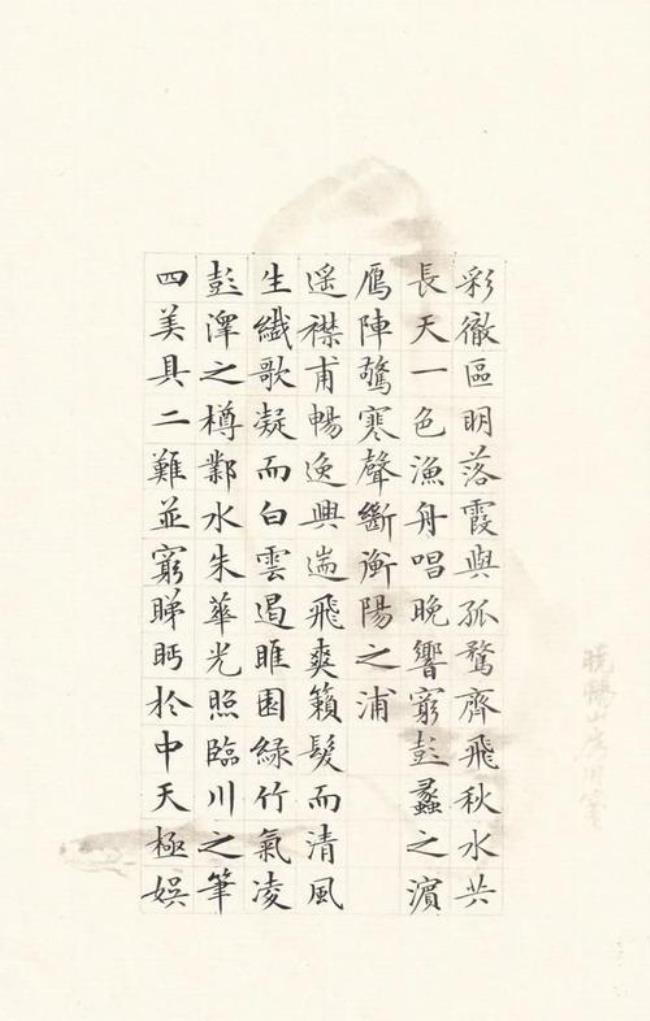 彩徹區明落霞與孤鶩齊飛秋水共
長天一色漁舟唱晚響窮彭蠡之濱
鴈陣驚寒聲斷衡陽之浦
遥襟甫暢逸興遄飛爽籟髮而清風
生纖歌凝而白雲遏睢園綠竹氣凌
彭澤之樽鄴水朱華光照臨川之筆
四美具二難並窮睇眄於中天極娛